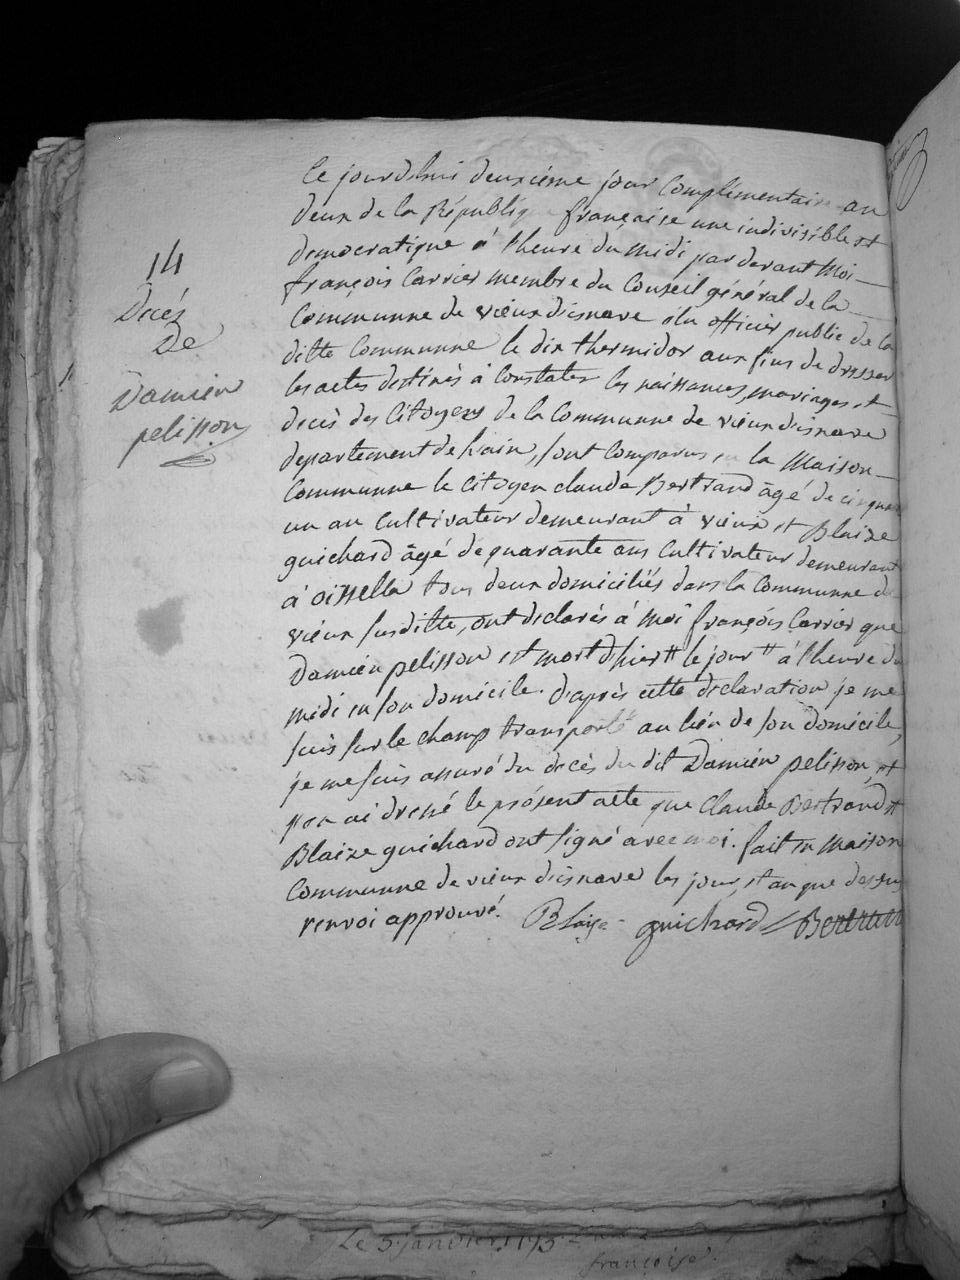 14
Décés
De
Damien
pelisson
Ce jourdhui deuxiéme jour Complémentaire an
deux de la République françaíse une indivisible et
democratique á l'heure du midi par devant Moi
françois Carrier membre du Conseil général de la
Communne de vieux d'isnave élu officier public de la
ditte Communne le dix thermidor aux fins de dresser
les actes destinés à Constater les naissances, mariages et
decès des Citoyens de la Communne de vieux d'isnave
departement de l'ain, sont Comparus en la Maison
Communne le Citoyen claude Bertrand âgé de cinquante
un an Cultivateur demeurant à vieux et Blaize
guichard âgé de quarante ans Cultivateur demeurant
à oissella tous deux domiciliés dans la Communne de
vieux susditte, ont declarés à Moi françois Carrier que
Damien pelisson est mort d'hier # le jour # á l'heure du
midi en son domicile. d'après cette declaration je me
suis sur le champ transporté au liéu de son domicile,
je me suis assuré du decès du dit Damien pelisson, et
j'en ai dressé le présent acte que Claude Bertrand et
Blaize guichard ont signé avec moi. fait en Maison
Communne de vieux d'isnave les jour, et an que dessus
renvoi approuvé.
Blaise guichard Bertrand
Le 5 janvier 1793
françoise